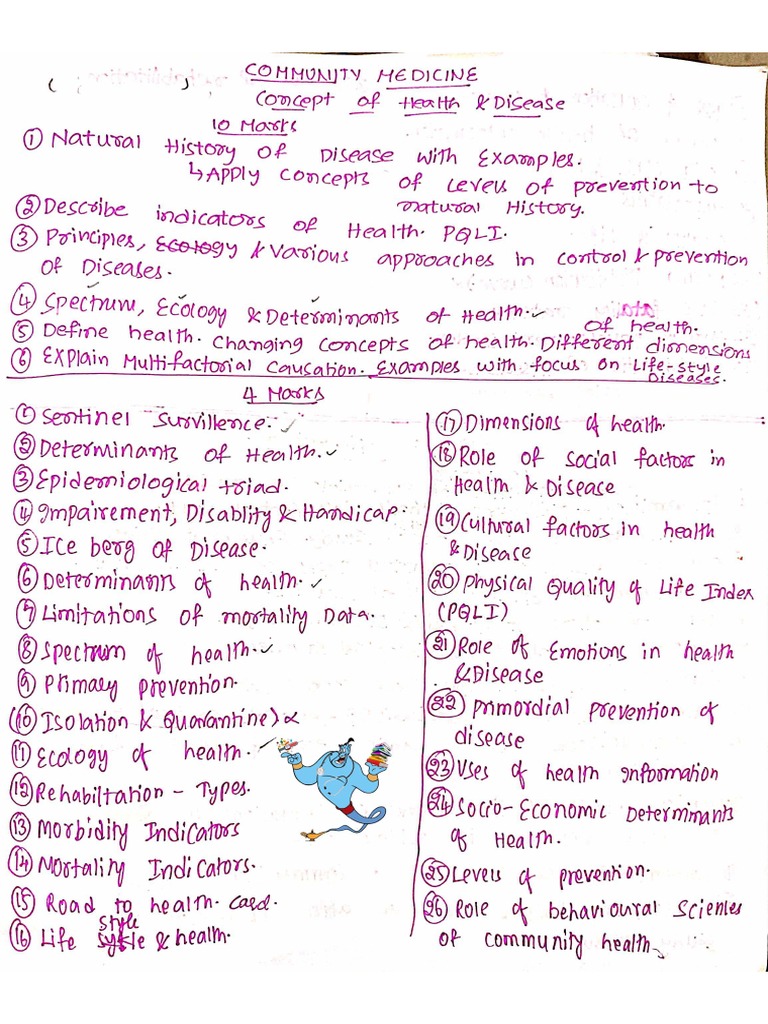 COMMUNITY MEDICINE
Concept of Health & Disease
10 Marks
① Natural History of Disease with Examples.
↳ Apply concepts of Levels of prevention to
natural History.
② Describe indicators of Health. PQLI.
③ Principles, Ecology & Various approaches in control & prevention
of Diseases.
④ Spectrum, Ecology & Determinants of Health.
⑤ Define health. Changing concepts of health. Different dimensions
of health.
⑥ Explain Multifactorial Causation. Examples with focus on Life-style
Diseases.
4 Marks
① Sentinel Survillence.
② Determinants of Health.
③ Epidemiological triad.
④ Impairement, Disablity & Handicap.
⑤ Ice berg of Disease.
⑥ Determinants of health.
⑦ Limitations of mortality Data.
⑧ Spectrum of health.
⑨ Primary prevention.
⑩ Isolation & Quarantine)
⑪ Ecology of health.
⑫ Rehabiltation - Types.
⑬ Morbidity Indicators
⑭ Mortality Indicators.
⑮ Road to health. Card.
⑯ Life style & health.
⑰ Dimensions of health.
⑱ Role of social factors in
Health & Disease
⑲ Cultural factors in health
& Disease
⑳ Physical Quality of Life Index
(PQLI)
㉑ Role of Emotions in health
& Disease
㉒ Primordial prevention of
disease
㉓ Uses of health Information
㉔ Socio-Economic Determinants
of Health.
㉕ Levels of prevention.
㉖ Role of behavioural Sciences
of community health